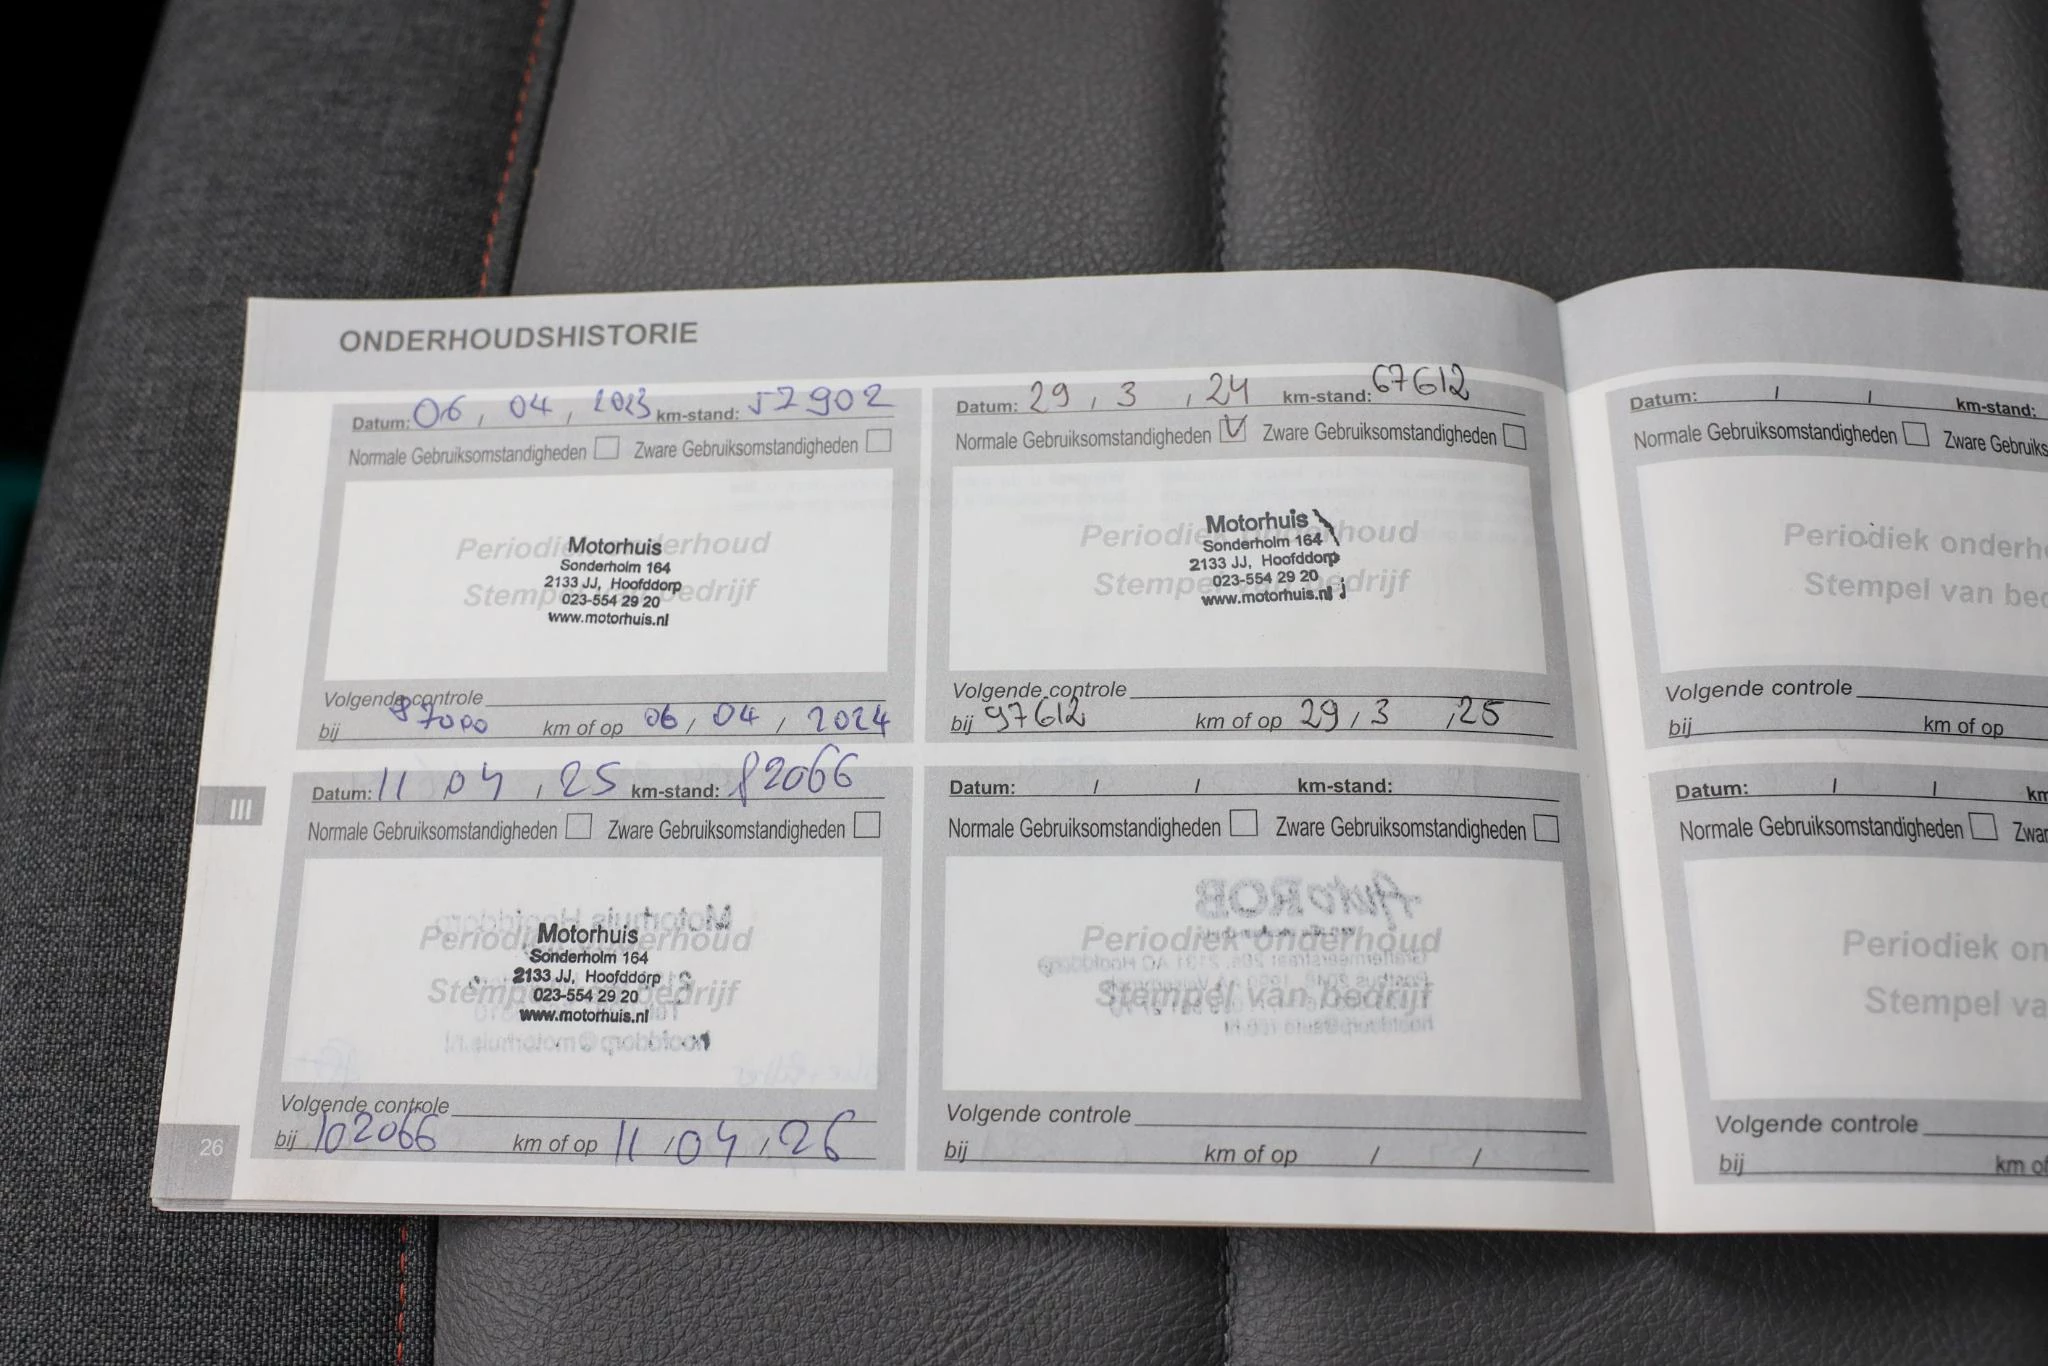 ONDERHOUDSHISTORIE
Datum: 06 , 04 , 2023 km-stand: 57902
Normale Gebruiksomstandigheden Zware Gebruiksomstandigheden
Periodiek onderhoud
Stempel van bedrijf
Motorhuis
Sonderholm 164
2133 JJ, Hoofddorp
023-554 29 20
www.motorhuis.nl
Volgende controle
bij 87000 km of op 06 , 04 , 2024
Datum: 29 , 3 , 24 km-stand: 67612
Normale Gebruiksomstandigheden V Zware Gebruiksomstandigheden
Periodiek onderhoud
Stempel van bedrijf
Motorhuis
Sonderholm 164
2133 JJ, Hoofddorp
023-554 29 20
www.motorhuis.nl
Volgende controle
bij 97612 km of op 29 , 3 , 25
Datum: 11 , 04 , 25 km-stand: 82066
Normale Gebruiksomstandigheden Zware Gebruiksomstandigheden
Periodiek onderhoud
Stempel van bedrijf
Motorhuis
Sonderholm 164
2133 JJ, Hoofddorp
023-554 29 20
www.motorhuis.nl
Volgende controle
bij 102066 km of op 11 / 04 , 26
Datum: / / km-stand:
Normale Gebruiksomstandigheden Zware Gebruiksomstandigheden
Periodiek onderhoud
Stempel van bedrijf
Volgende controle
bij km of op / /
III
26
Datum: / / km-stand:
Normale Gebruiksomstandigheden Zware Gebruiks
Periodiek onderh
Stempel van bed
Volgende controle
bij km of op
Datum: / / km
Normale Gebruiksomstandigheden Zwar
Periodiek on
Stempel va
Volgende controle
bij km of